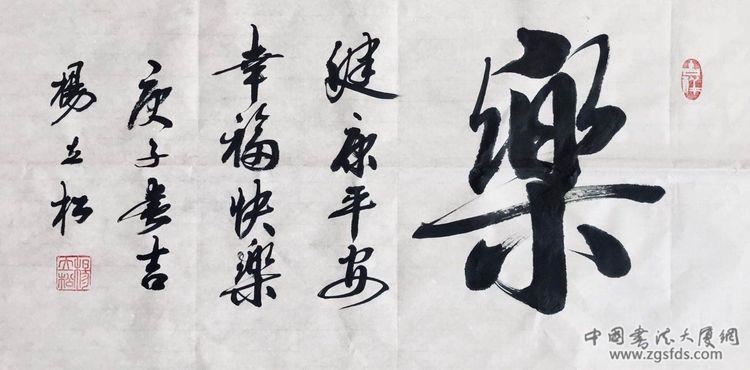 樂
健康平安
幸福快樂
庚子春吉
楊立松
中國书法大厦網
www.zgsfds.com